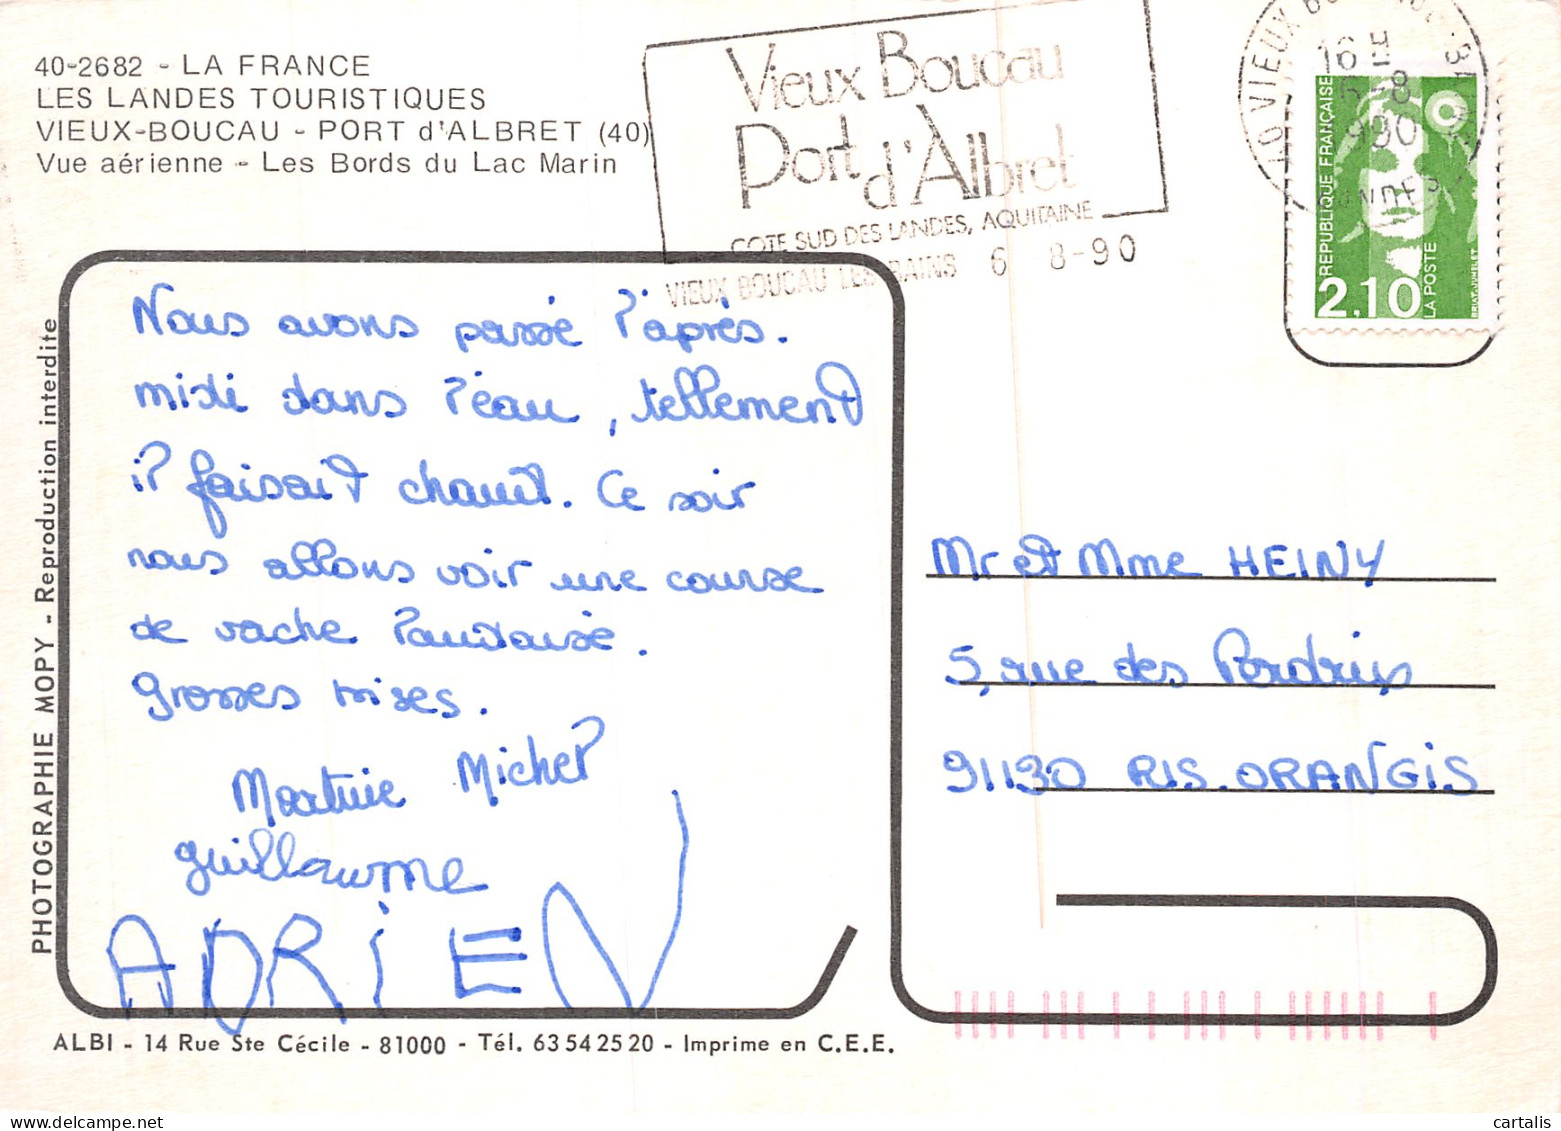 40-2682 - LA FRANCE
LES LANDES TOURISTIQUES
VIEUX-BOUCAU - PORT d'ALBRET (40)
Vue aérienne - Les Bords du Lac Marin
Vieux Boucau
Port d'Albret
COTE SUD DES LANDES, AQUITAINE
VIEUX BOUCAU LES BAINS 6 8-90
40 VIEUX BOUCAU
16 H
6-8
1990
LANDES
REPUBLIQUE FRANÇAISE
2,10
LA POSTE
BRIAT-JUMELET
PHOTOGRAPHIE MOPY - Reproduction interdite
Nous avons passé l'après.
midi dans l'eau, tellement
il faisait chaud. Ce soir
nous allons voir une course
de vache landaise.
Grosses bises.
Martine Michel
Guillaume
ADRIEN
Mr et Mme HEINY
5, rue des Perdrix
91130 RIS.ORANGIS
ALBI - 14 Rue Ste Cécile - 81000 - Tél. 63 54 25 20 - Imprime en C.E.E.
cartalis
www.delcampe.net